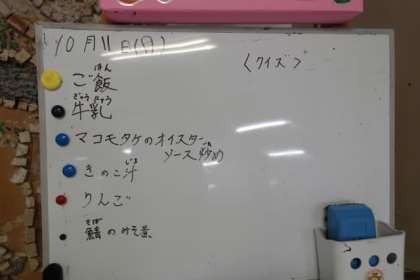 10月11日(月)
<クイズ>
ご飯
はん
牛乳
ぎゅうにゅう
マコモタケのオイスター
ソース炒め
いた
きのこ汁
じる
りんご
鯖のみそ煮
さば